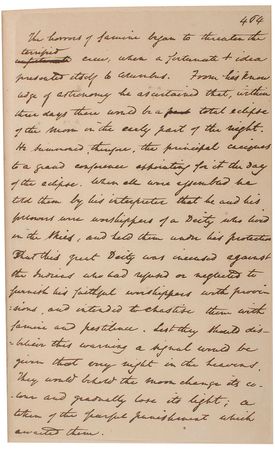 404
The horrors of famine began to threaten the
terrified
crew, when a fortunate idea
presented itself to Columbus. From his know
ledge of astronomy he ascertained that, within
three days there would be a total eclipse
of the moon in the early part of the night.
He summoned, therefore, the principal caciques
to a grand conference appointing for it the day
of the eclipse. When all were assembled he
told them by his interpreter that he and his
followers were worshippers of a Deity who lived
in the skies, and held them under his protection
That this great Deity was incensed against
the Indians who had refused or neglected to
furnish his faithful worshippers with provi-
sions, and intended to chastise them with
famine and pestilence. Lest they should dis-
believe this warning a signal would be
given that very night in the heavens.
They would behold the moon change its co-
lour and gradually lose its light; a
token of the fearful punishment which
awaited them.